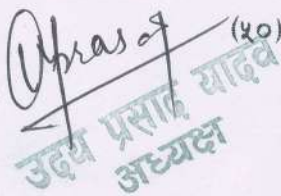 (५०)
उदय प्रसाद यादव
अध्यक्ष